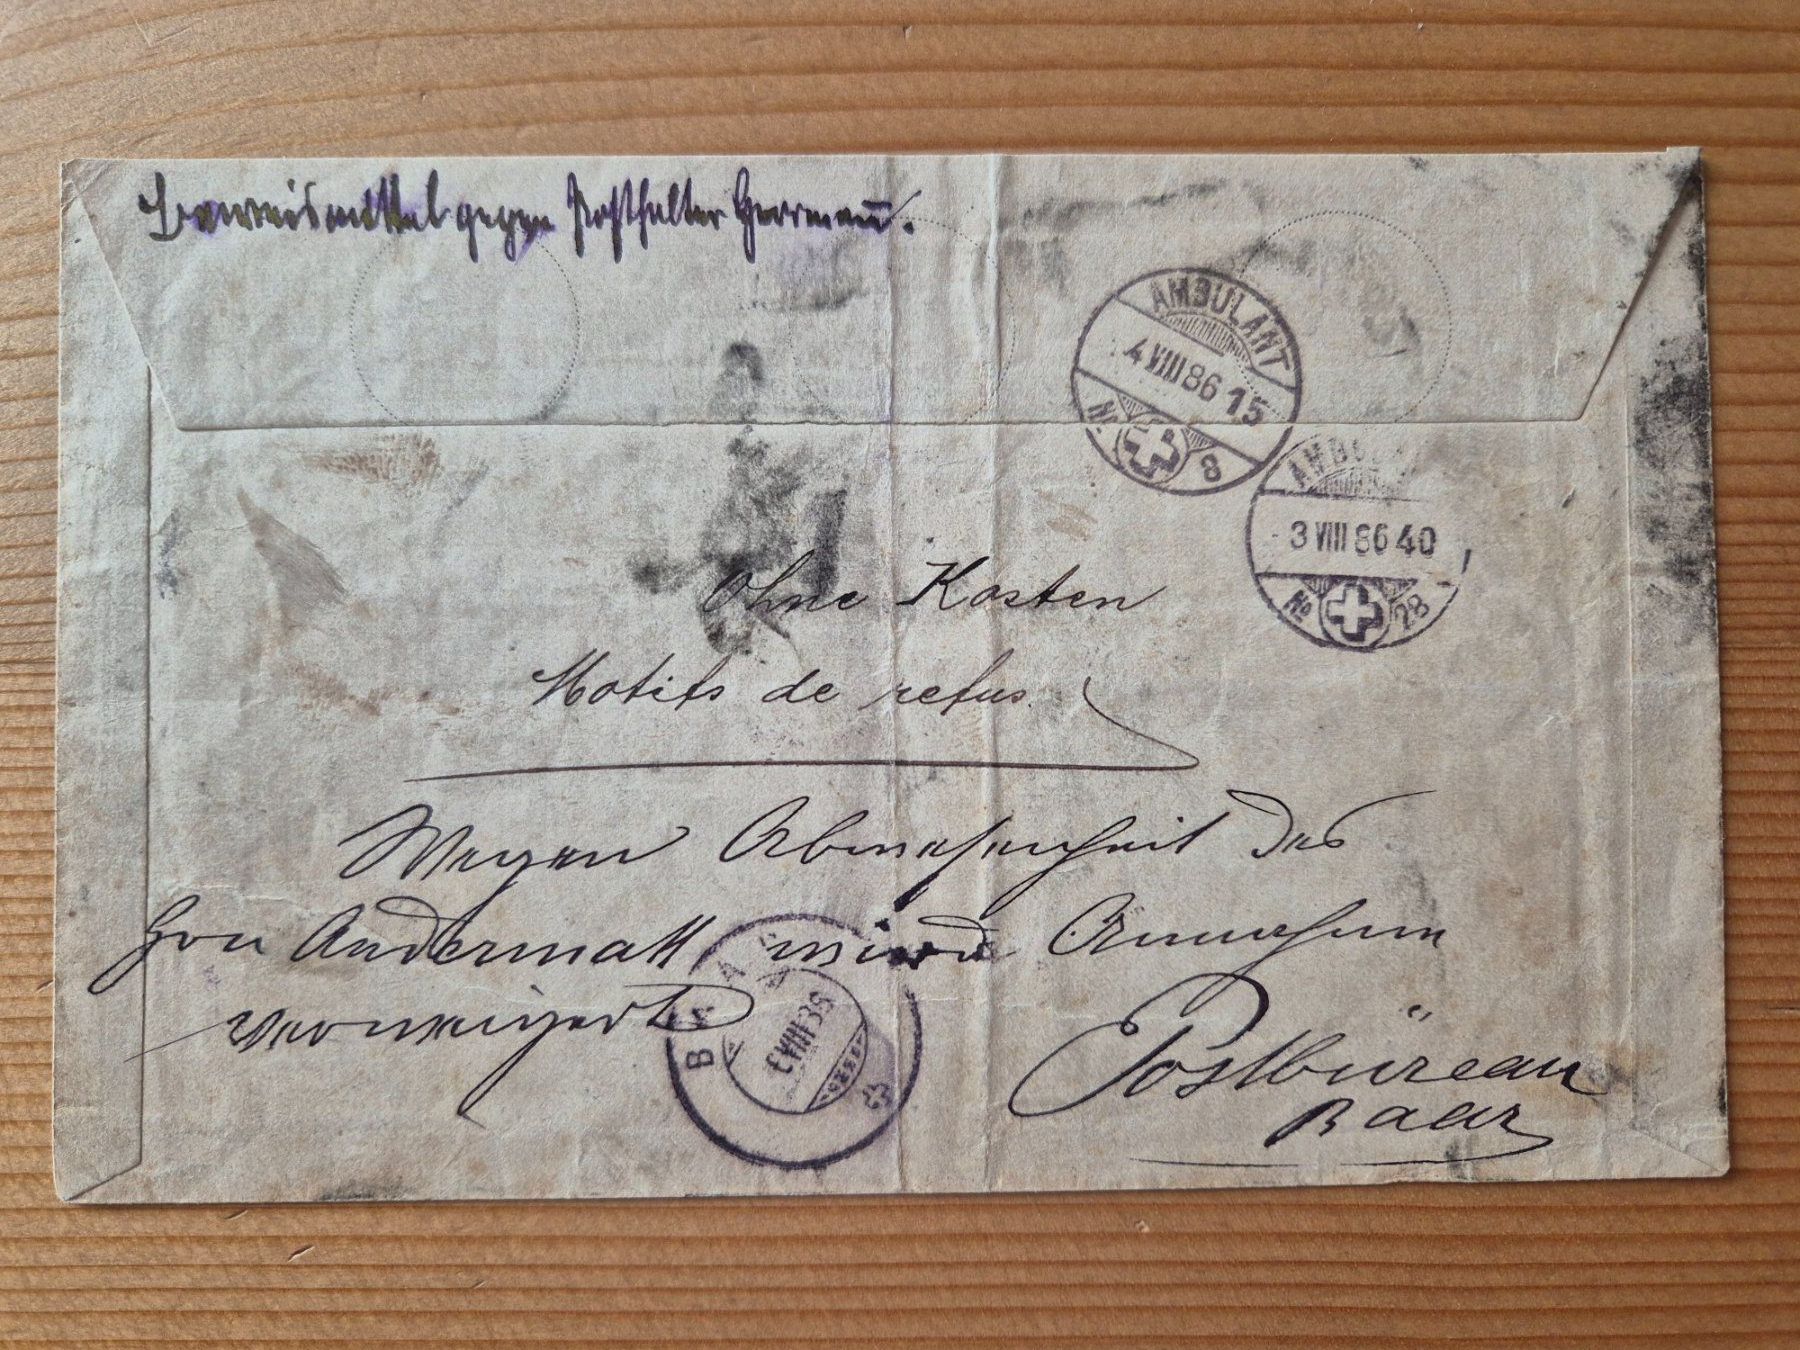 Beweismittel gegen Posthalter Herrmann.
AMBULANT
4 VIII 86 15
No. 8
AMBULA
3 VIII 86 40
No 28
Ohne Kosten
Motifs de refus.
Wegen Abwesenheit des
Hrn Andermatt wird Annahme
verweigert
BAAR
VIII
Postbüreau
Baar